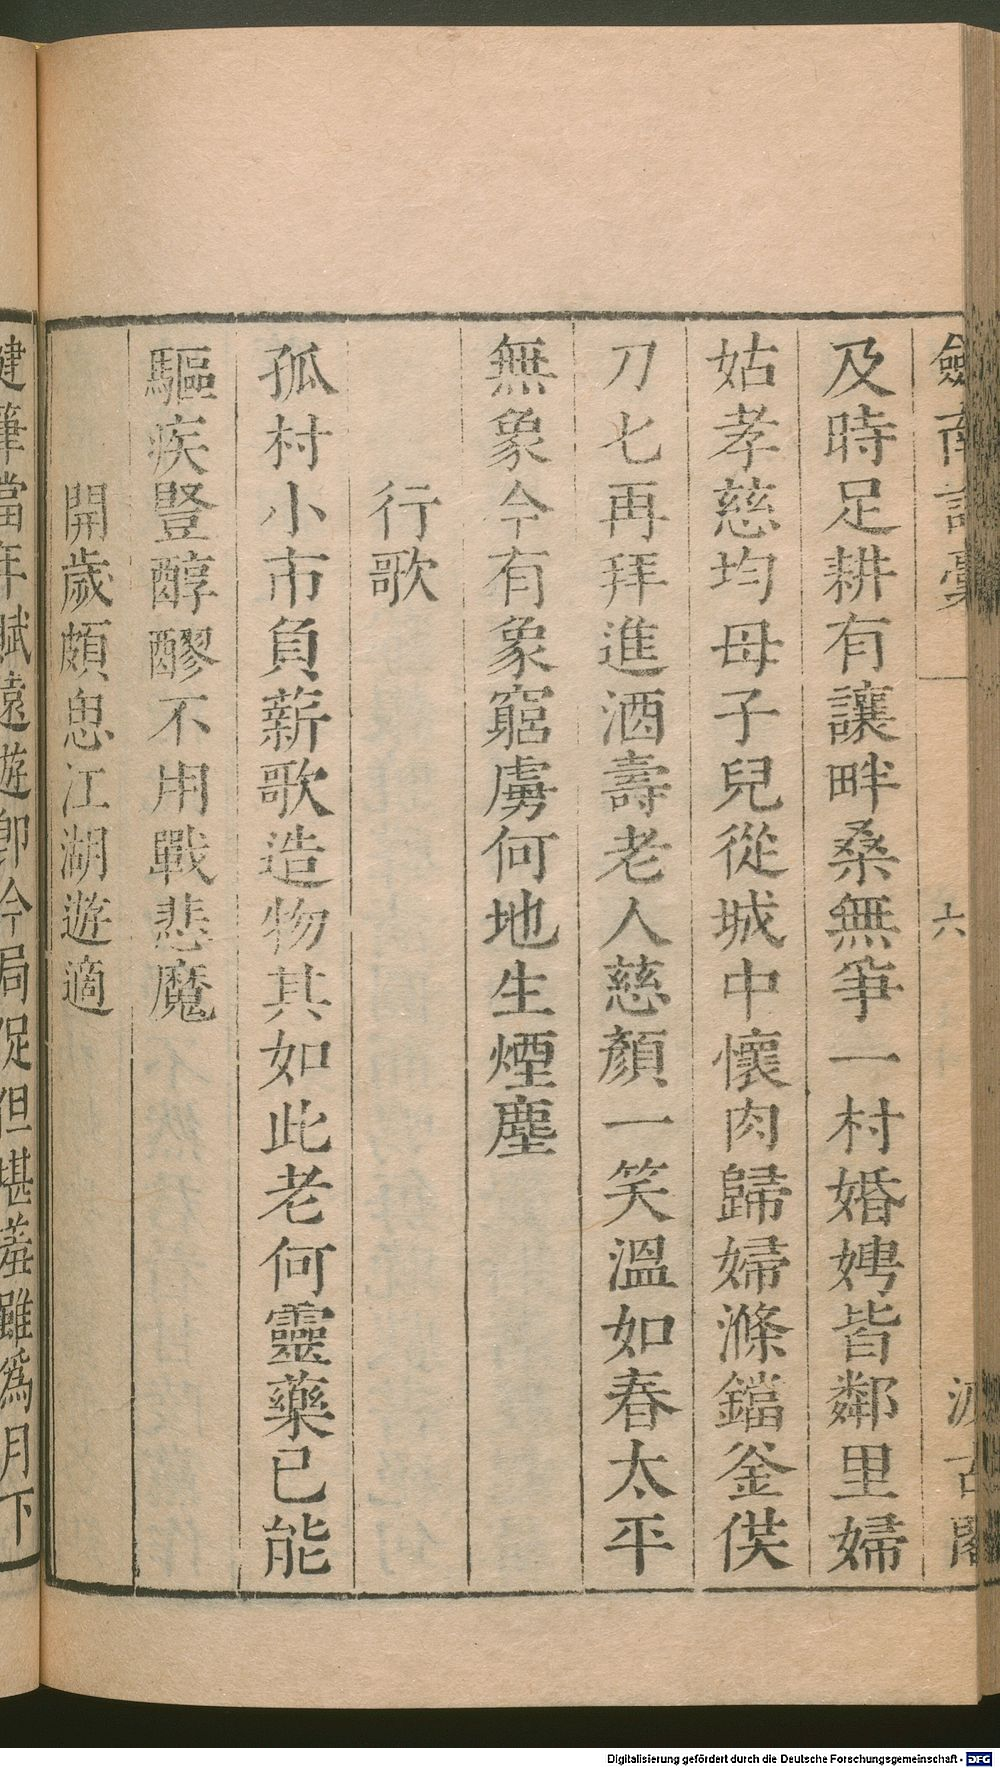 劒南詩藁
六
汲古閣
及時足耕有讓畔桑無爭一村婚娉皆鄰里婦
姑孝慈均母子兒從城中懷肉歸婦滌鐺釜俟
刀匕再拜進酒壽老人慈顏一笑溫如春太平
無象今有象窮虜何地生煙塵
行歌
孤村小市負薪歌造物其如此老何靈藥已能
驅疾豎醇醪不用戰悲魔
開歲頗思江湖遊適
健筆當年賦遠遊卽今局促但堪羞雖爲月下
Digitalisierung gefördert durch die Deutsche Forschungsgemeinschaft - DFG